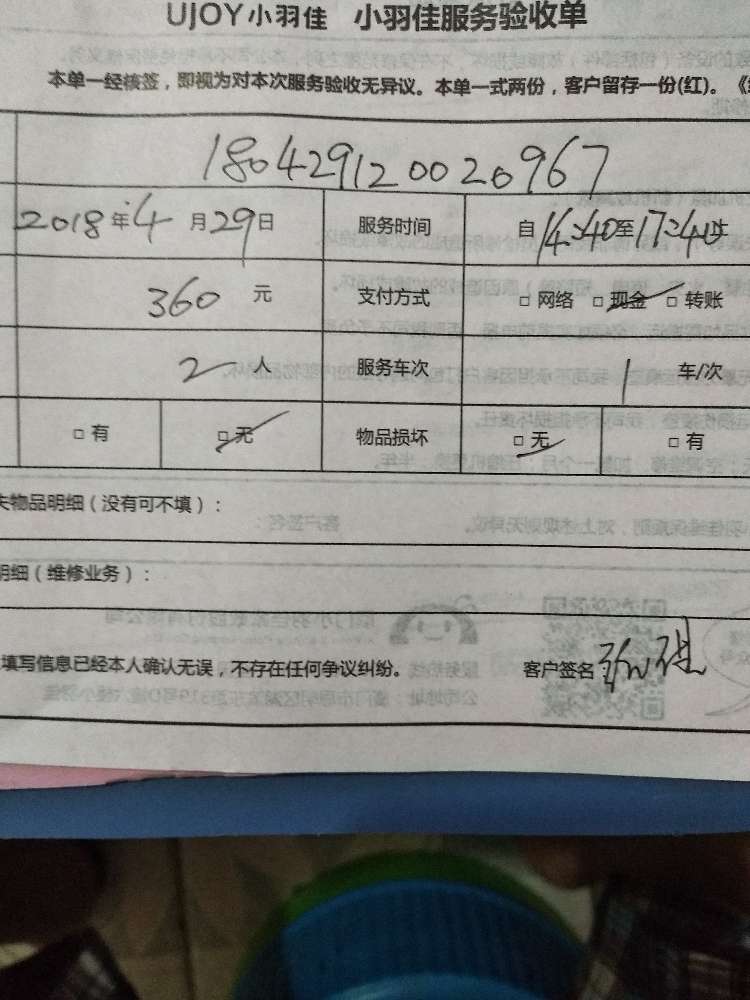 UJOY小羽佳 小羽佳服务验收单
本单一经核签，即视为对本次服务验收无异议。本单一式两份，客户留存一份(红)。
18042912 0020967
2018年4月29日 服务时间 自14:40至17:40止
360元 支付方式 □ 网络 □ 现金 □ 转账
2人 服务车次 1 车/次
□ 有 □ 无 物品损坏 □ 无 □ 有
失物品明细（没有可不填）：
明细（维修业务）：
填写信息已经本人确认无误，不存在任何争议纠纷。 客户签名